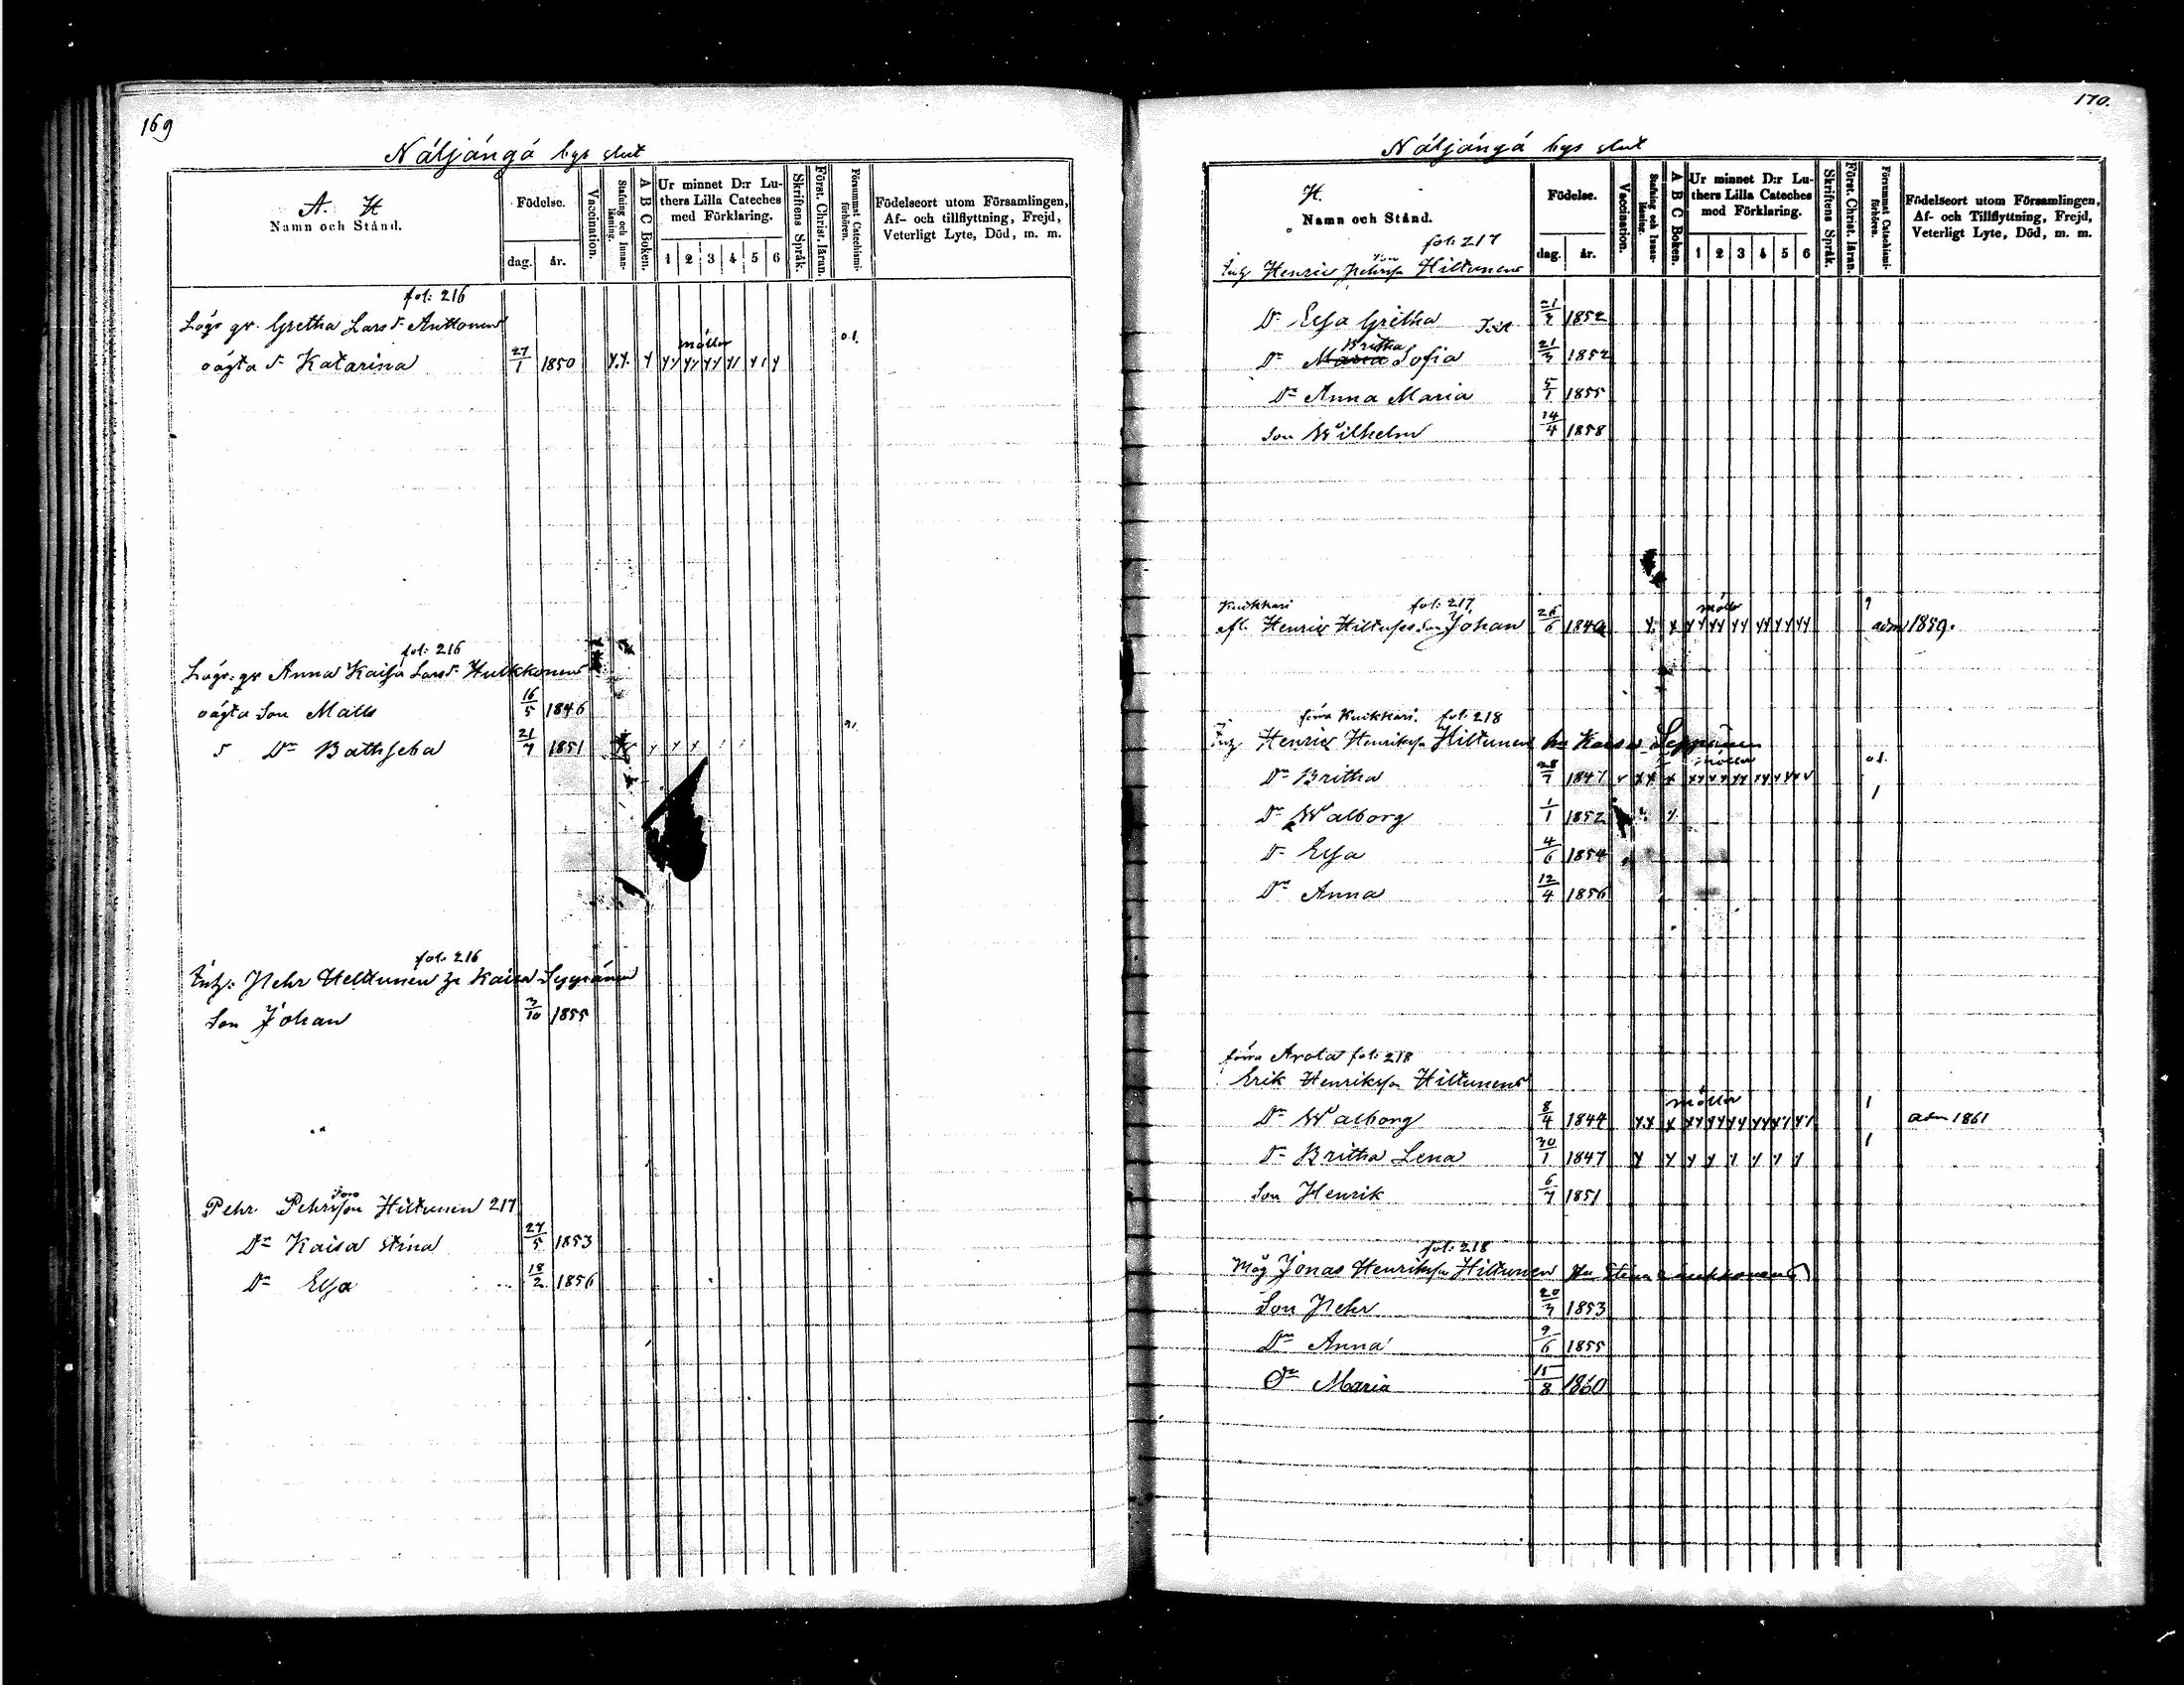 169
Náljángá bys slut
A. H
Namn och Stånd.
Födelse.
dag.
år.
Vaccination.
Stafning och Innan-läsning.
A B C Boken.
Ur minnet D:r Lu-
thers Lilla Cateches
med Förklaring.
1 2 3 4 5 6
Skriftens Språk.
Först. Christ. läran.
Försummat Catechismi-förhören.
Födelseort utom Församlingen,
Af- och tillflyttning, Frejd,
Veterligt Lyte, Död, m. m.
fol: 216
Lögs qv. Gretha Lars d:r Anttonens
oägta d:r Katarina 27/1 1850
fol: 216
Lögs: qv Anna Kaisa Lars d:r Hulkkonens
oägta Son Matts 16/5 1846
Dr Bathseba 21/7 1851
fol: 216
Inh: Pehr Heltunen
Son Johan 3/10 1855
Pehr Pehrsson Hiltunen 217
Dr Kaisa Stina 27/5 1853
Dr Elsa 18/2 1856
170.
Náljángá bys slut
H.
Namn och Stånd.
Födelse.
dag.
år.
Vaccination.
Stafning och Innan-läsning.
A B C Boken.
Ur minnet D:r Lu-
thers Lilla Cateches
med Förklaring.
1 2 3 4 5 6
Skriftens Språk.
Först. Christ. läran.
Försummat Catechismi-förhören.
Födelseort utom Församlingen,
Af- och Tillflyttning, Frejd,
Veterligt Lyte, Död, m. m.
fol: 217
Inh Henric Pehrss Hiltunens
Dr Elsa Gretha 1852
Britha
Dr Maria Sofia 21/3 1852
Dr Anna Maria 5/1 1855
Son Wilhelm 14/4 1858
Kuikkari fol: 217
afl. Henric Hiltuses Son Johan 26/6 1840 adm 1859.
förra Kuikkari. fol: 218
Inh Henric Henrikss Hiltunen hu Kaisa Seppänen
Dr Britha 28/7 1847
Dr Walborg 1/1 1852
Dr Elsa 4/6 1854
Dr Anna 12/4 1856
förra Arola fol: 218
Erik Henrikss Hiltunens
Dr Walborg 8/4 1844 adm 1861
Dr Britha Lena 30/1 1847
Son Henrik 6/7 1851
fol: 218
Måg Jonas Henrikss Hiltunen
Son Pehr 20/3 1853
Dr Anna 9/6 1855
Dr Maria 15/8 1860